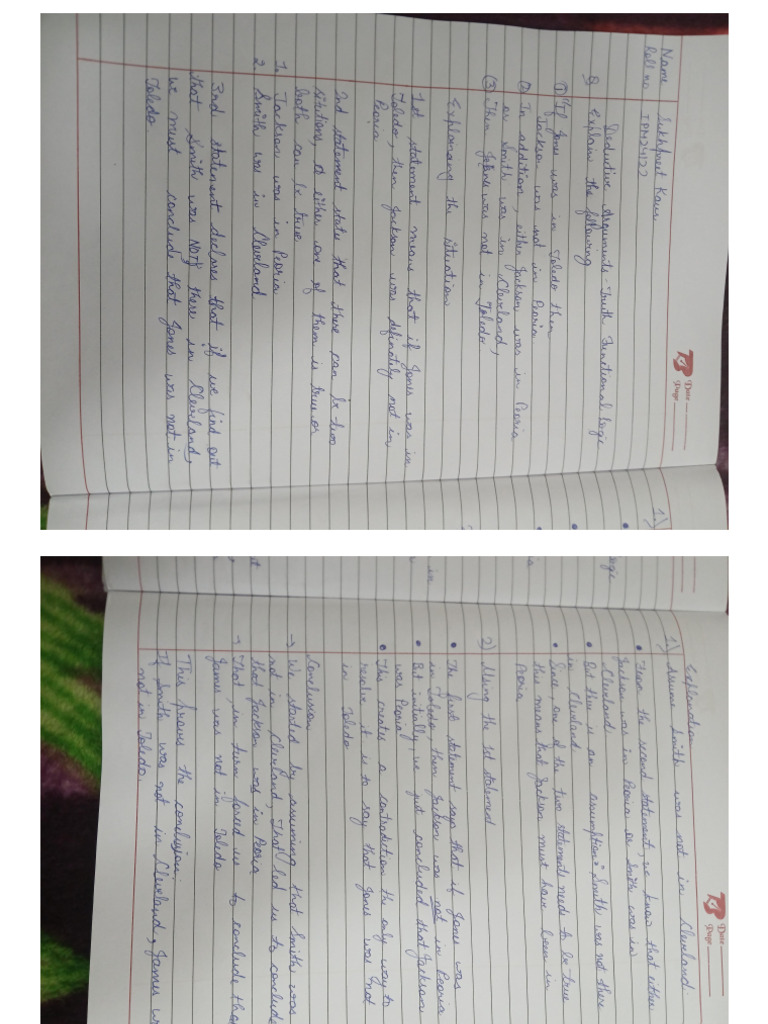 Date
Page
Name Sukhpreet Kaur
Roll no IPM24122
Deductive Arguments - Truth Functional Logic
Q Explain the following
(1) If Jones was in Toledo then
Jackson was not in Peoria
(2) In addition, either Jackson was in Peoria
or Smith was in Cleveland,
(3) Then Jones was not in Toledo
Explaining the situation
1st statement means that if Jones was in
Toledo, then Jackson was definately not in
Peoria
2nd statement state that there can be two
sitations, either one of them is true or
both can be true.
1. Jackson was in Peoria
2. Smith was in Cleveland
3rd statement declares that if we find out
that Smith was NOT there in Cleveland,
we must conclude that Jones was not in
Toledo
1)
Date
Page
Explanation
1) Assume Smith was not in Cleveland:
• From the second statement, we know that either
Jackson was in Peoria or Smith was in
Cleveland
• But there is an assumption: Smith was not there
in Cleveland
• Since, one of the two statements needs to be true
this means that Jackson must have been in
Peoria
2) Using the 1st statement
• The first statement says that if Jones was
in Toledo, then Jackson was not in Peoria
• But initially, we just concluded that Jackson
was Peoria
• This creates a contradiction the only way to
resolve it is to say that Jones was not
in Toledo
Conclusion
→ We started by assuming that Smith was
not in Cleveland, That led us to conclude
that Jackson was in Peoria
→ That, in turn forced us to conclude that
James was not in Toledo
This proves the conclusion:
If Smith was not in Cleveland, James w
not in Toledo.